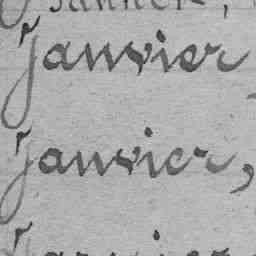 janvier
janvier,